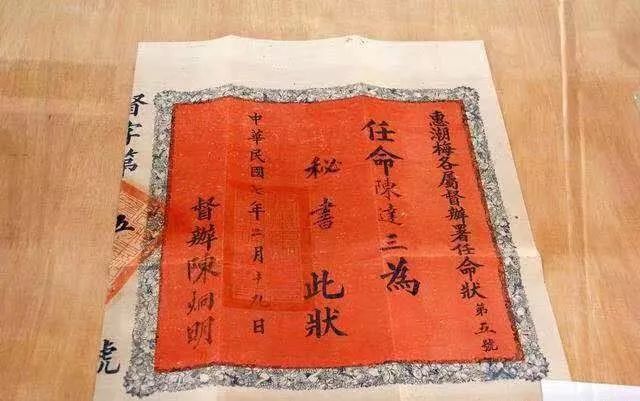 惠潮梅各屬督辦署任命狀第五號
任命陳達三為
秘書
此狀
中華民國七年三月十九日
督辦陳炯明
督字第五號